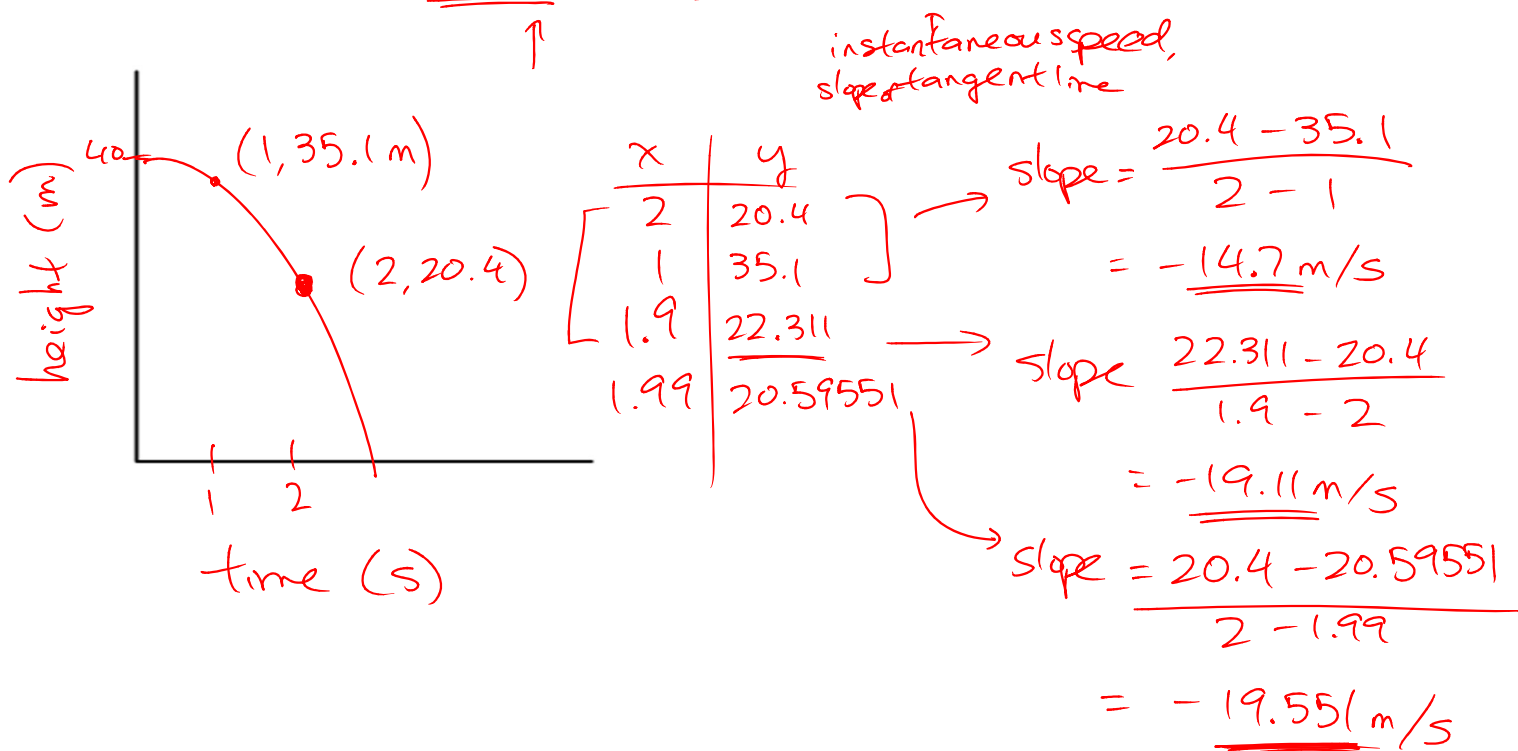 instantaneous speed,
slope of tangent line
40
(1, 35.1 m)
(2, 20.4)
height (m)
1 2
time (s)
x y
2 20.4
1 35.1
1.9 22.311
1.99 20.59551
slope = 20.4 - 35.1
2 - 1
= -14.7 m/s
slope 22.311 - 20.4
1.9 - 2
= -19.11 m/s
slope = 20.4 - 20.59551
2 - 1.99
= -19.551 m/s